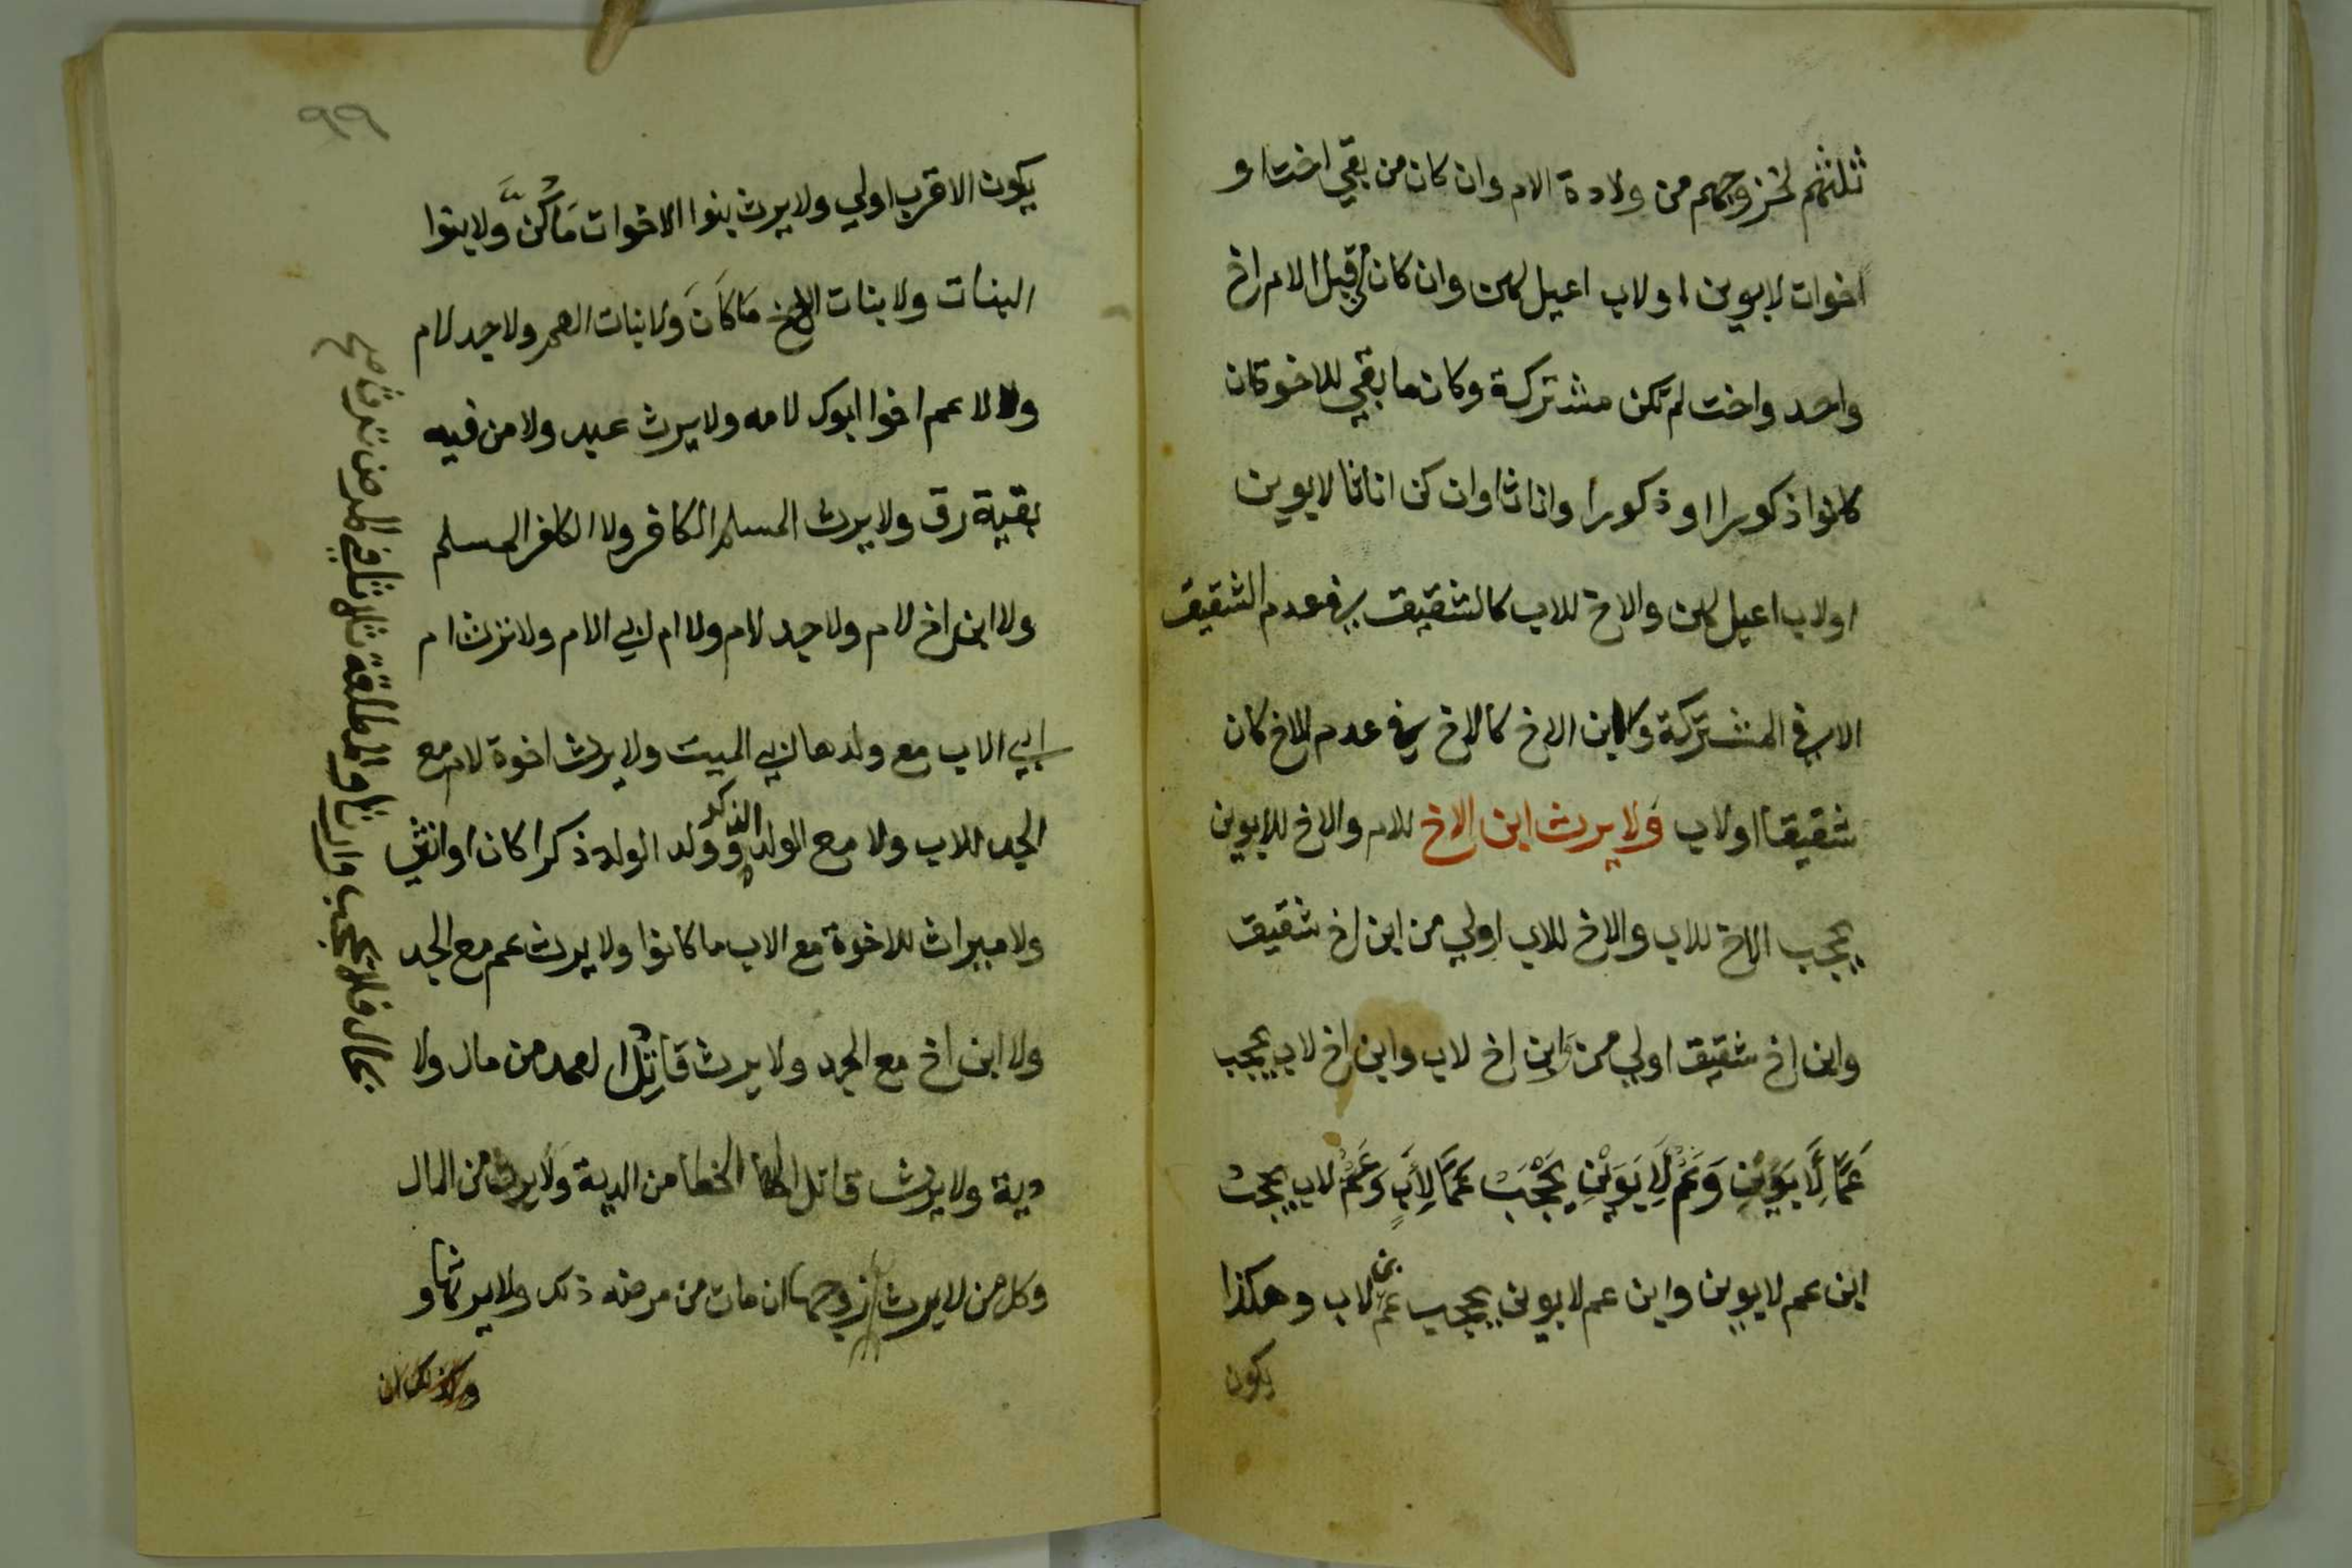 ثلثهم لخزوجهم من ولادة الام وان كان من بقي اختا او
اخوات لابوين او لاب اعيل لهن وان كان من قبل الام اخ
واحد واخت لم تكن مشتركة وكان ما بقي للاخوة ان
كانوا ذكورا او ذكورا واناثا وان كن اناثا لابوين
او لاب اعيل لهن والاخ للاب كالشقيق في عدم الشقيق
الا في المشتركة وابن الاخ كالاخ في عدم الاخ كان
شقيقا او لاب ولا يرث ابن الاخ للام والاخ للابوين
يحجب الاخ للاب والاخ للاب اولي من ابن اخ شقيق
وابن اخ شقيق اولي من ابن اخ لاب وابن اخ لاب يحجب
عَمًّا لِأَبَوَيْنِ وَعَمٌّ لِأَبَوَيْنِ يَحْجُبُ عَمًّا لِأَبٍ وَعَمٌّ لاب يحجب
ابن عم لابوين وابن عم لابوين يحجب ابن عم لاب وهكذا
يكون
٩٩
يكون الاقرب اولي ولا يرث بنوا الاخوات مَا كُنَّ ولا بنوا
البنات ولا بنات الاخ مَا كَانَ ولا بنات العم ولا جد لام
ولا عم اخوا ابوك لامه ولا يرث عبد ولا من فيه
بقية رق ولا يرث المسلم الكافر ولا الكافر المسلم
ولا ابن اخ لام ولا جد لام ولا ام لابي الام ولا ترث ام
ابي الاب مع ولدها ابي الميت ولا يرث اخوة لام مع
الجد للاب ولا مع الولد وولد الولد الذكر ذكرا كان او انثي
ولا ميراث للاخوة مع الاب ما كانوا ولا يرث عم مع الجد
ولا ابن اخ مع الجد ولا يرث قاتل العمد من مال ولا
دية ولا يرث قاتل الخطا من الدية ولا يرث من المال
وكل من لا يرث زوجها ان مات من مرضه ذلك ولا يرثها و
بحال فلا يحجب وارثا والمطلقة ثلاثا في المرض ترث صح